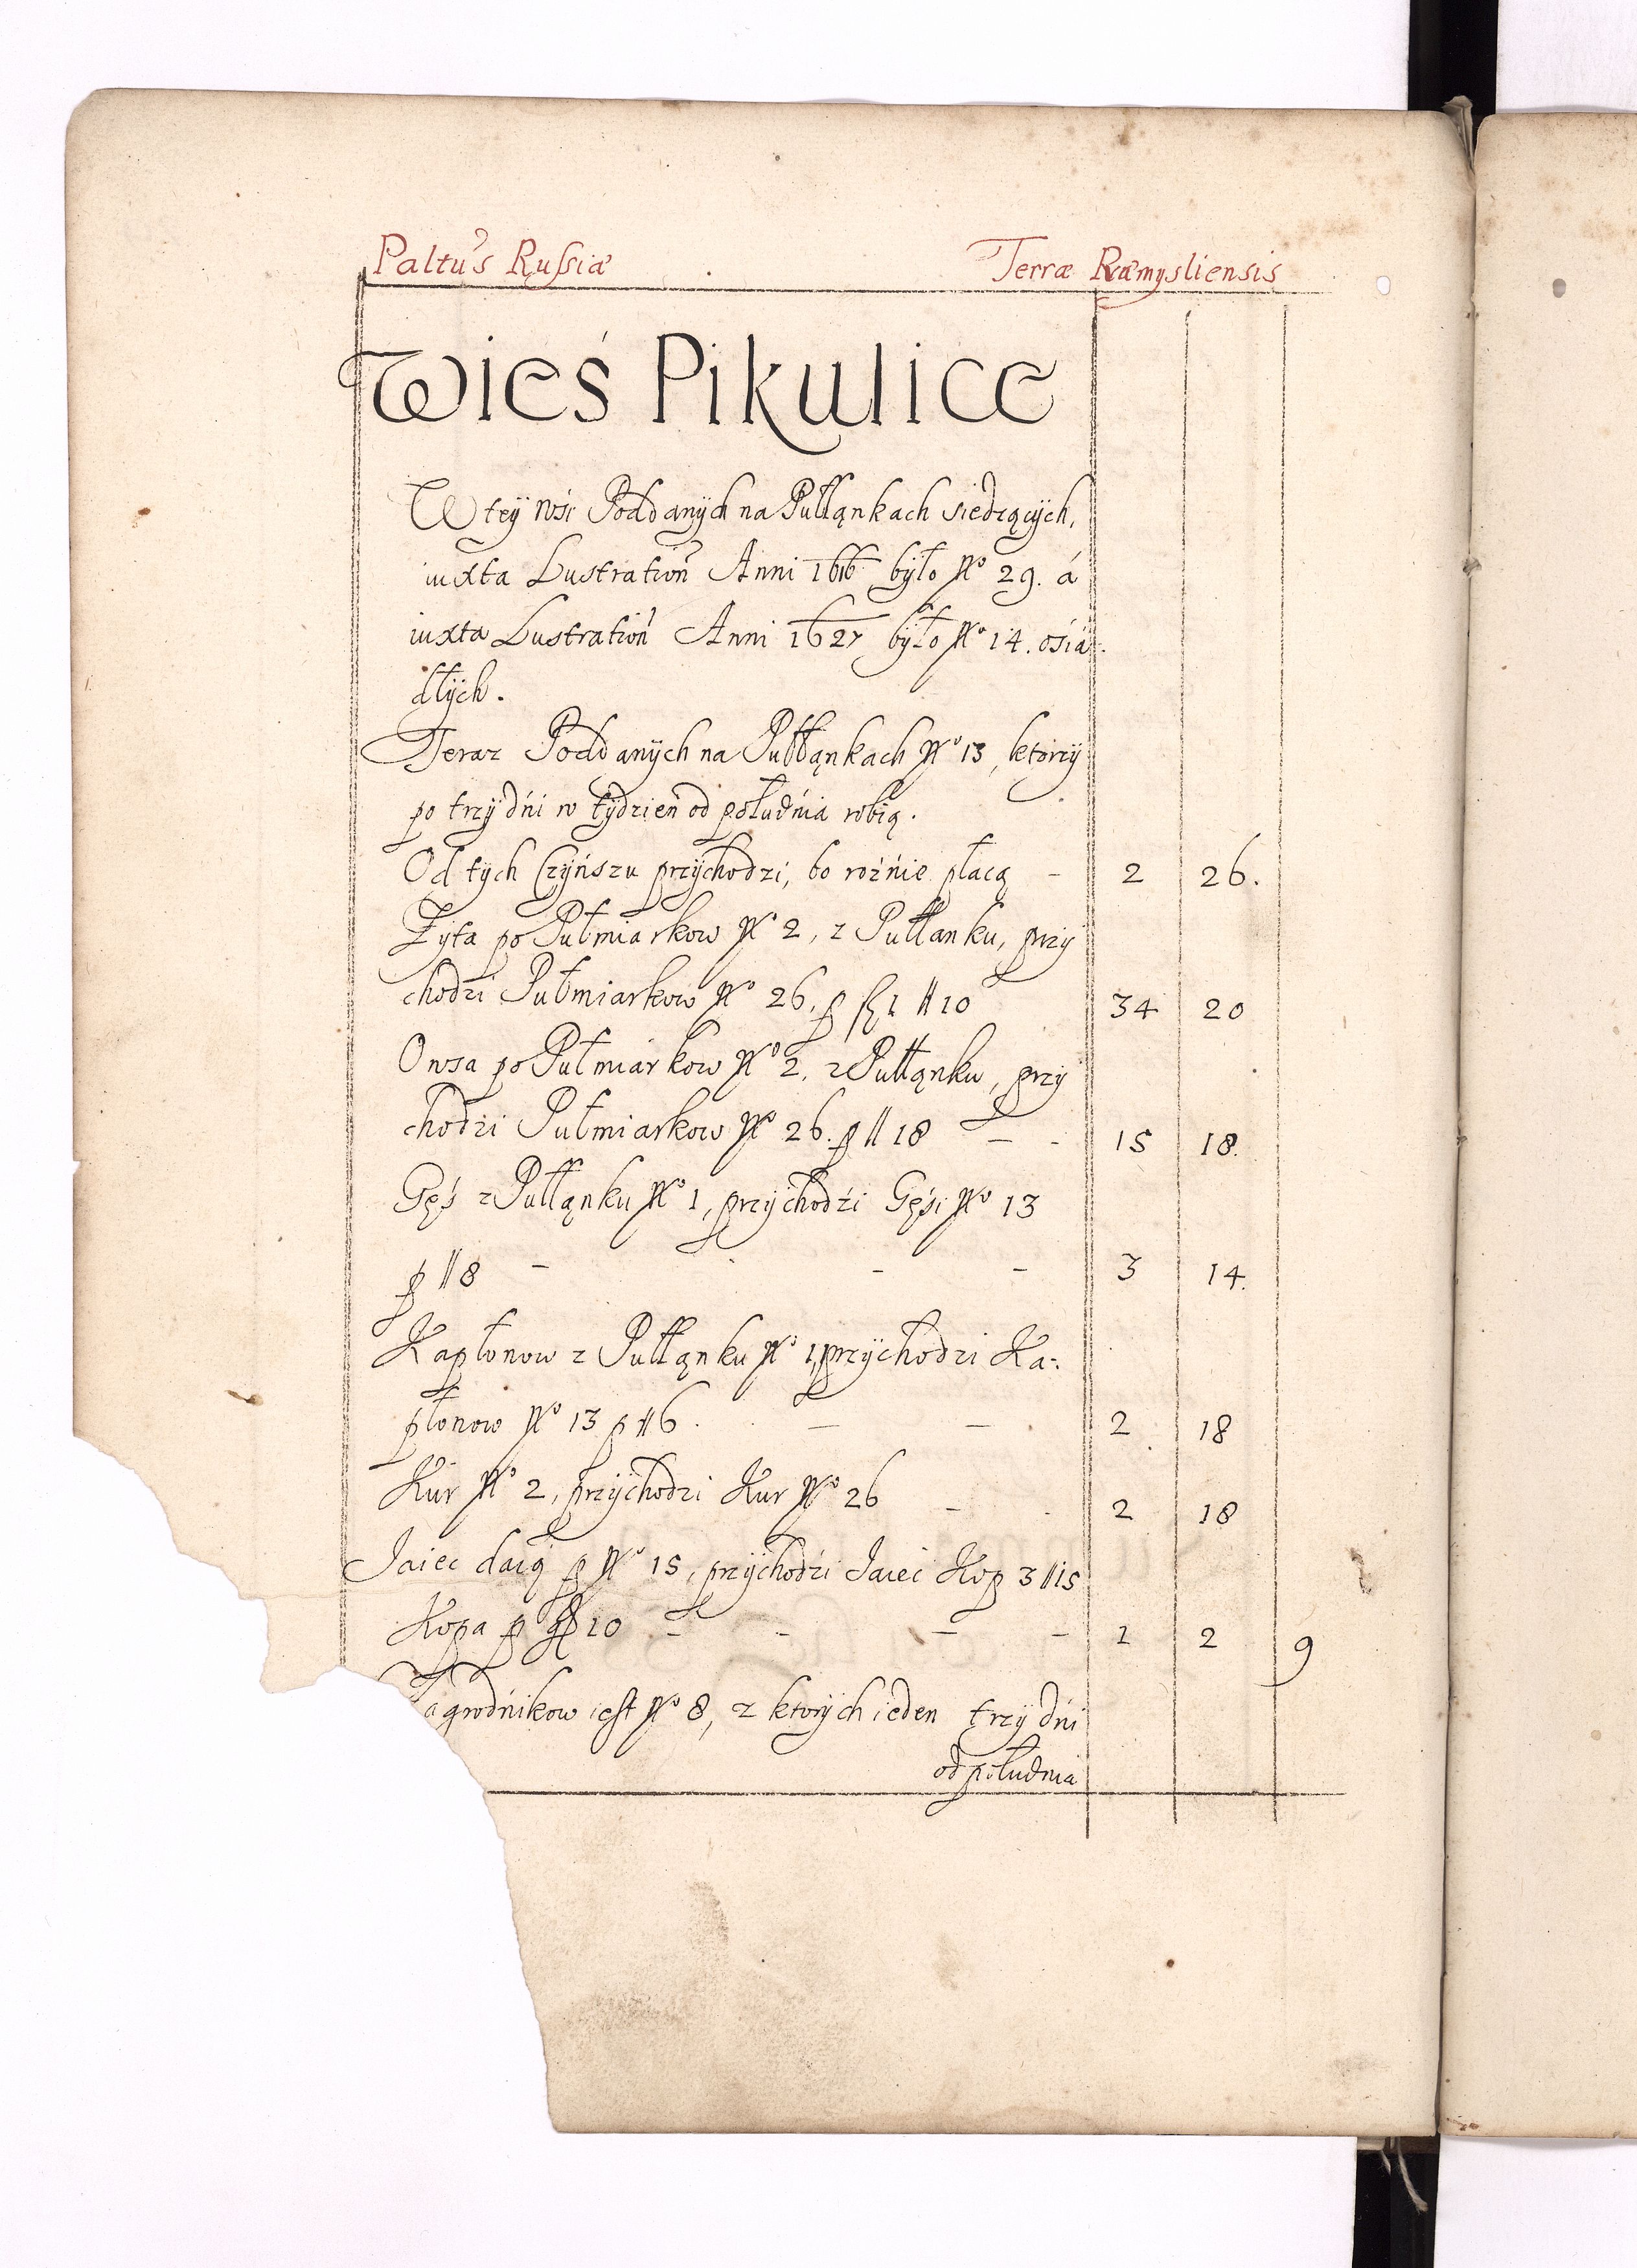 Paltûs Rusſiæ Terræ Præmysliensis
Wieś Pikulice
W teÿ Wśi Poddanÿch na Pułłąnkach siedzącÿch,
iuxta Lustration̄ Anni 1616 było No 29. á
iuxta Lustration̄ Anni 1627 bÿło No 14. ośiá-
dłÿch.
Teraz Poddanÿch na Pułłąnkach No 13, ktorzÿ
po trzÿ dńi w tÿdzień od południa robią.
Od tÿch Czÿńszu przÿchodzi, bo rożńie płacą - 2 26.
Zÿta po Pułmiarkow No 2, z Pułłanku, przÿ
chodzi Pułmiarkow No 26. p fl 1 // 10 34 20
Owsa po Pułmiarkow No 2. z Pułłąnku, przÿ
chodzi Pułmiarkow No 26. p // 18 - - 15 18.
Gęś z Pułłąnku No 1, przÿchodźi Gęśi No 13
p // 8 - - - 3 14.
Kapłonow z Pułłąnku No 1, przÿchodzi Ka-
płonow No 13 p // 6. - - 2 18
Kur No 2, przÿchodzi Kur No 26 - 2 18
Jaiec daią p No 15, przÿchodźi Jaiec Kop 3 // 15
Kopa p gr 10 - - - - 1 2 9
agrodńikow iest No 8, z ktorÿch ieden trzÿ dńi
od południa